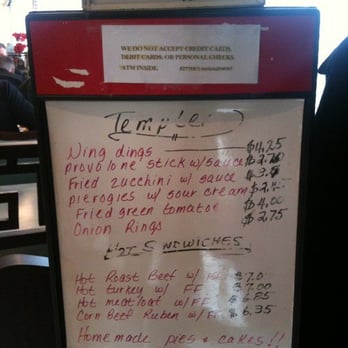 WE DO NOT ACCEPT CREDIT CARDS,
DEBIT CARDS, OR PERSONAL CHECKS.
ATM INSIDE. MANAGEMENT
Wing dings $4.25
provolone stick w/ sauce
Fried zucchini w/ sauce
pierogies w/ sour cream
Fried green tomatoe $4.00
Onion Rings $2.75
HOT SANDWICHES
Hot Roast Beef w/ FF
Hot turkey w/ FF $7.00
Hot meatloaf w/ FF $6.85
Corn Beef Ruben w/ FF $6.35
Home made pies & cakes!!